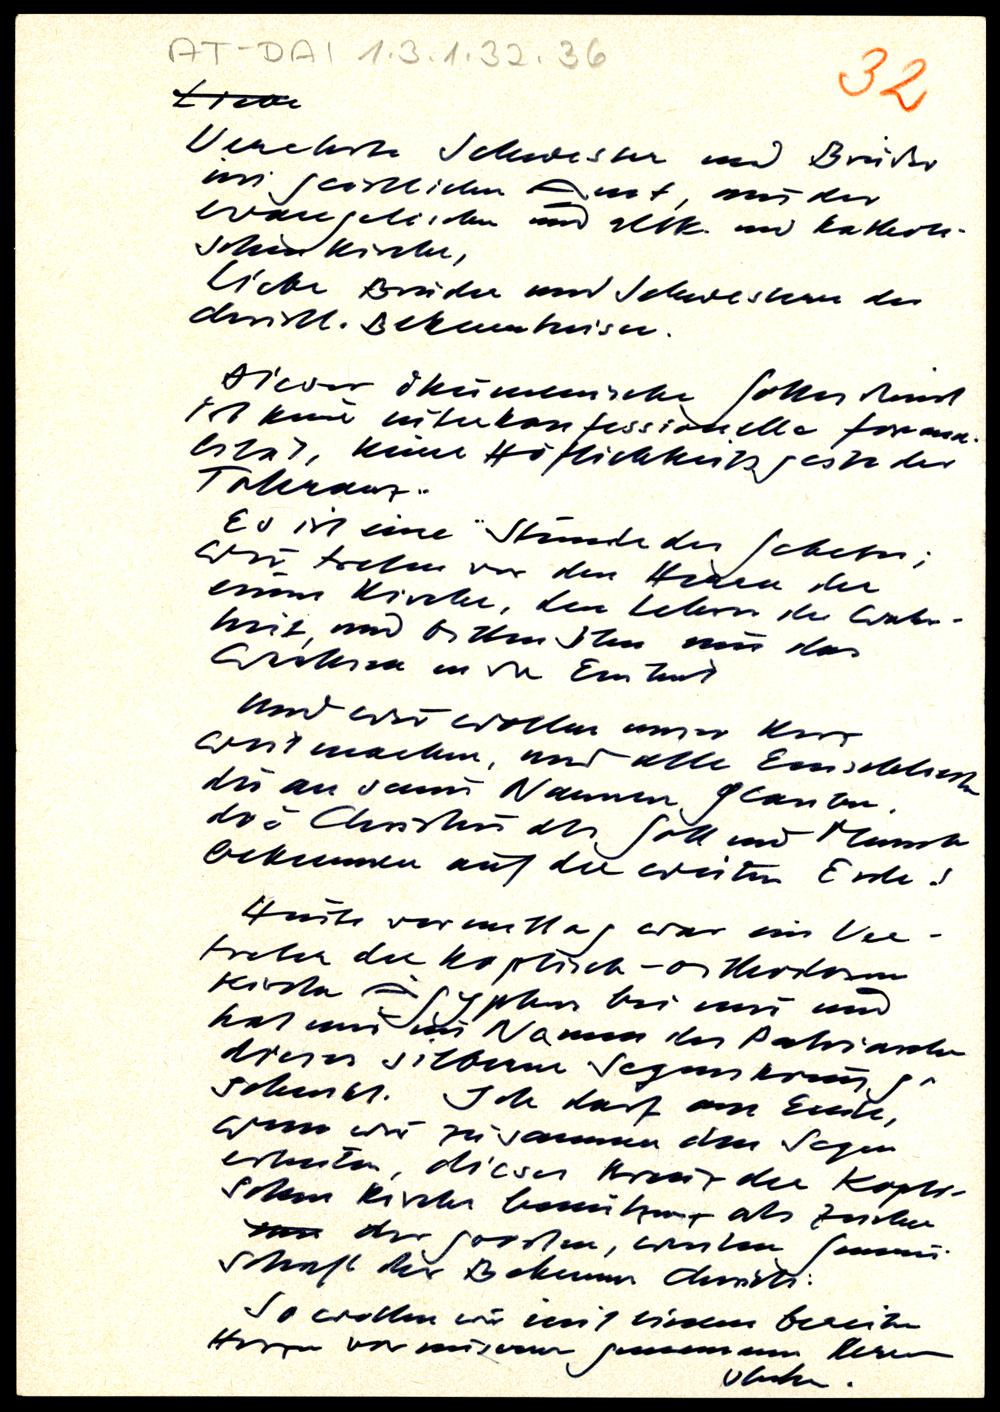 AT-DAI 1.3.1.32.36
32
Liebe
Verehrte Schwestern und Brüder
im geistlichen Amt, aus der
evangelischen und altk. und katholi-
schen Kirche,
Liebe Brüder und Schwestern der
christl. Bekenntnisse.
Dieser ökumenische Gottesdienst
ist keine interkonfessionelle Forma-
lität, keine Höflichkeitsgeste der
Toleranz.
Es ist eine Stunde des Gebetes;
wir treten vor den Herrn der
einen Kirche, den Lehrer der Wahr-
heit, und bitten Ihn um das
Wachsen in die Einheit
Und wir wollen unser Herz
weit machen, und alle Einschliessen
die an seinen Namen glauben.
die Christus als Gott und Mensch
bekennen auf der weiten Erde!
Heute vormittag war ein Ver-
treter der koptisch-orthodoxen
Kirche Ägyptens bei mir und
hat mir im Namen des Patriarchen
dieses silberne Segenskreuz ge-
schenkt. Ich darf am Ende,
wenn wir zusammen den Segen
erbeten, dieses Kreuz der Kopti-
schen Kirche benützen als Zeichen
der grossen, weiten Gemein-
schaft der Bekenner Christi.
So wollen wir mit einem bereiten
Herzen vor unserem gemeinsamen Herrn
stehen.